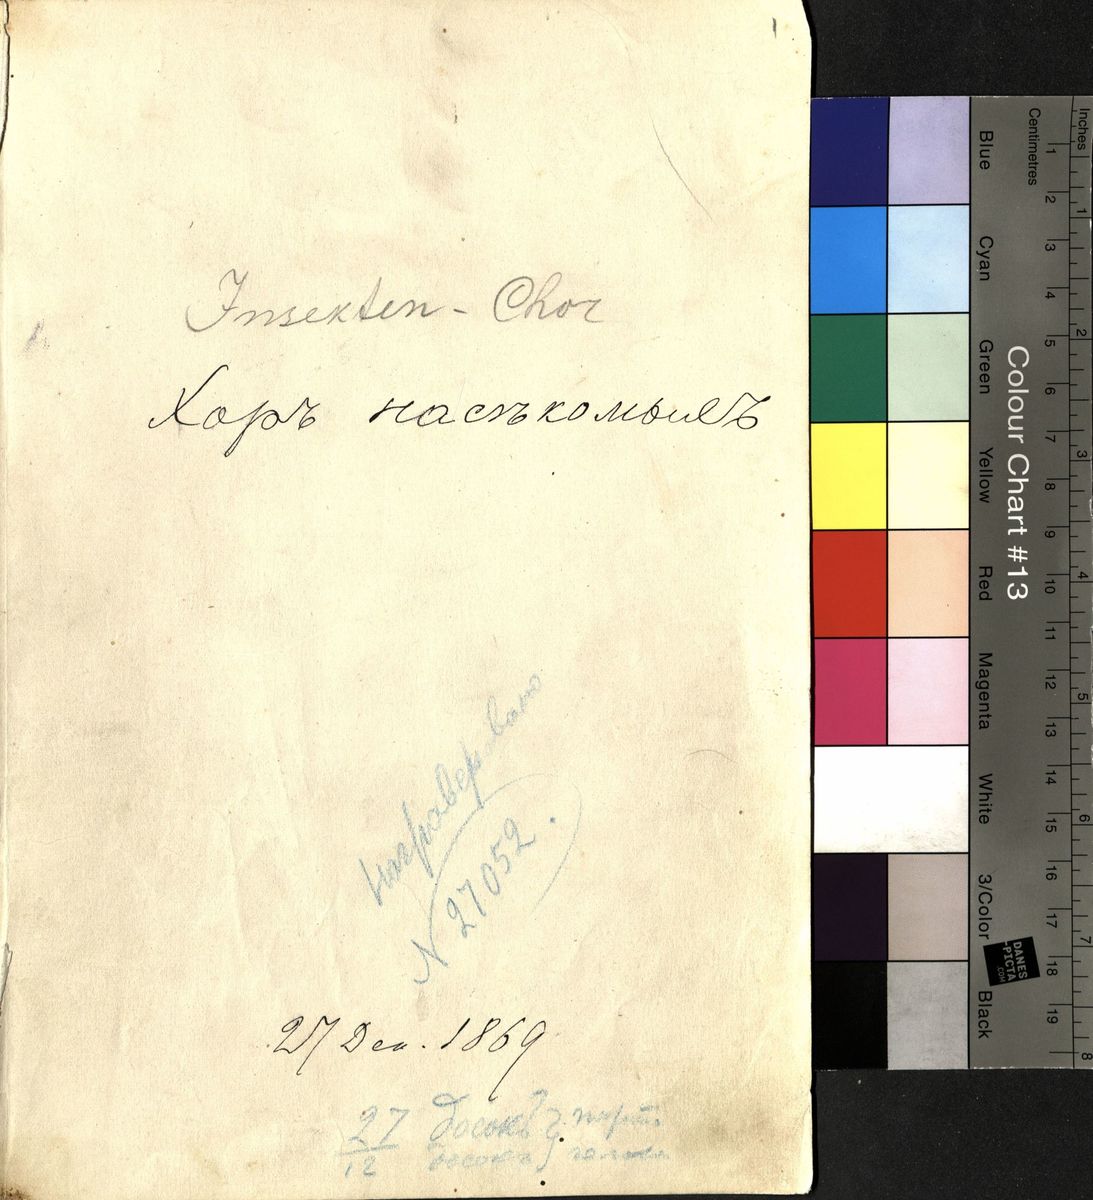 Insekten - Chor
Хоръ насѣкомыхъ
награвировано
N 27052.
27 Дек. 1869
27 досокъ
12 досокъ
Blue
Cyan
Green
Yellow
Red
Magenta
White
3/Color
Black
Colour Chart #13
DANES
-PICTA
.COM
Centimetres
1 2 3 4 5 6 7 8 9 10 11 12 13 14 15 16 17 18 19
Inches
1 2 3 4 5 6 7 8